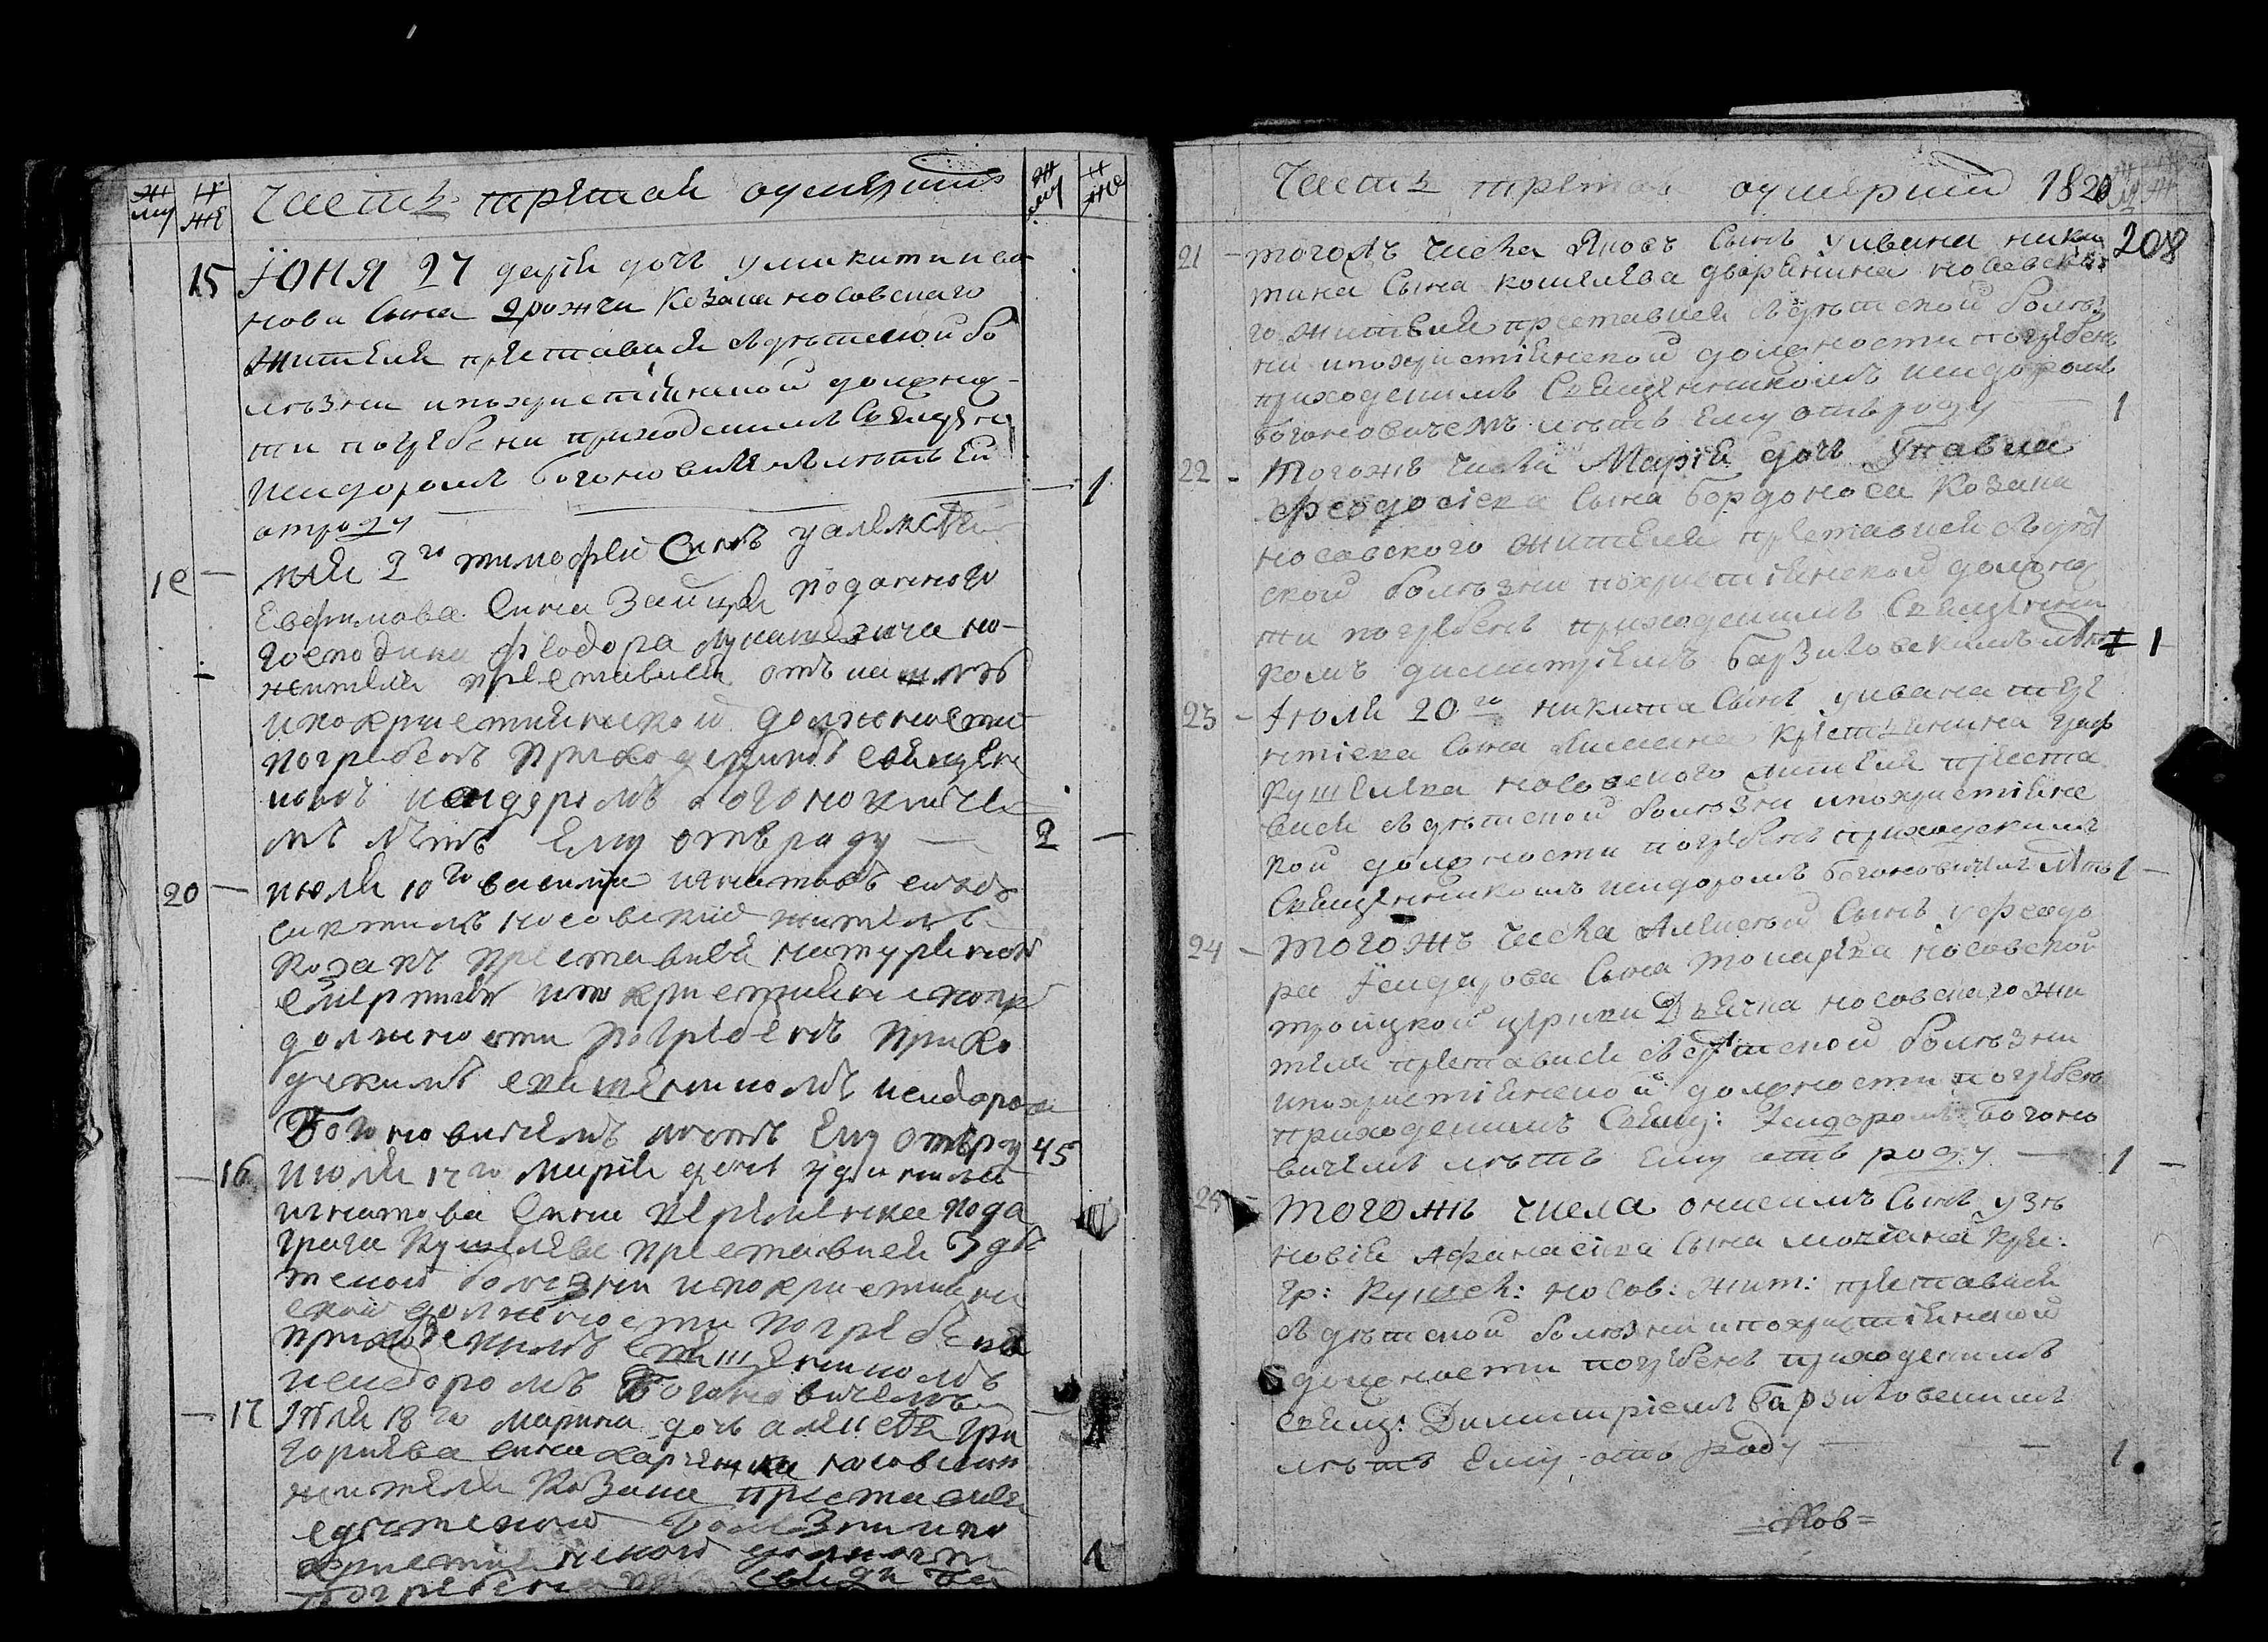 му же Часть третая оумершихъ му же
15 Їюня 27 дарія дочь у никити ива
нова сына дрожчи козака носовскаго
жителя преставися дѣтской бо
лѣзни и похристіянской должнос
ти погребена приходскимъ священ
исидоромъ богоновичемъ лѣтъ ей
отроду 1
19 июля 2го тимофей синъ у алексѣя
Евфимова сина Зайцъ подданного
господина феодора но
жителя преставися отъ
и похристиянской должности
погребенъ приходскимъ священ
исидоромъ богоновиче
мъ лѣтъ ему отъ роду 2
20 июля 10го василий игнатовъ синъ
носовский житель
козакъ преставися натуралной
смертию и по християнской
должности погребенъ прихо
дскимъ священникомъ исидоро
Богоновичемъ лѣтъ ему отъ роду 45
16 июля 17го марія дочь у данила
игнатова сина подда
графа кушелева преставися дѣ
тской болезни и похристиян
ской должности погребена
приходскимъ священникомъ
исидоромъ Богоновичемъ
17 Июля 18го марина дочь алексѣя гри
гориева сина харченка носовского
жителя козака преставися
дѣтской болѣзни и по
християнской должности
погребена 1
Часть третая оумершихъ 1820
208
21 тогожъ числа Яковъ сынъ у ивана ники
тина сына кошелева дворянина носовска
го жителя преставися дѣтской болѣз
ни и похристіянской должности погребенъ
приходскимъ священникомъ исидоромъ
богоновичемъ лѣтъ ему отъ роду 1
22 тогожъ числа Марія дочь у павла
феодосіева сына бордоноса козака
носовского жителя преставися дѣт
ской болѣзни похристіянской должнос
ти погребенъ приходскимъ священни
комъ димитріемъ барзиловскимъ лѣтъ 1
23 Іюля 20го никита сынъ у ивана тере
нтіева сына крестянина граф
кушелева носовского жителя преста
вися дѣтской болѣзни и похристіянс
кой должности погребенъ приходскимъ
священникомъ исидоромъ богоновичемъ лѣтъ 1
24 тогожъ числа Алексѣй сынъ у феодо
ра Ісидорова сына токарева носовской
троицкой церкви дьячка носовскаго жи
теля преставися дѣтской болѣзни
и похристіянской должности погребенъ
приходскимъ свящ: Ісидоромъ богоно
вичемъ лѣтъ ему отъ роду 1
25 тогожъ числа онисимъ сынъ у зѣ
новія Афанасіева сына мочана кре:
гр: кушел: носов: жит: преставися
дѣтской болѣзни и похристіянской
должности погребенъ приходскимъ
свящ: Димитріемъ барзиловскимъ
лѣтъ ему ото роду 1